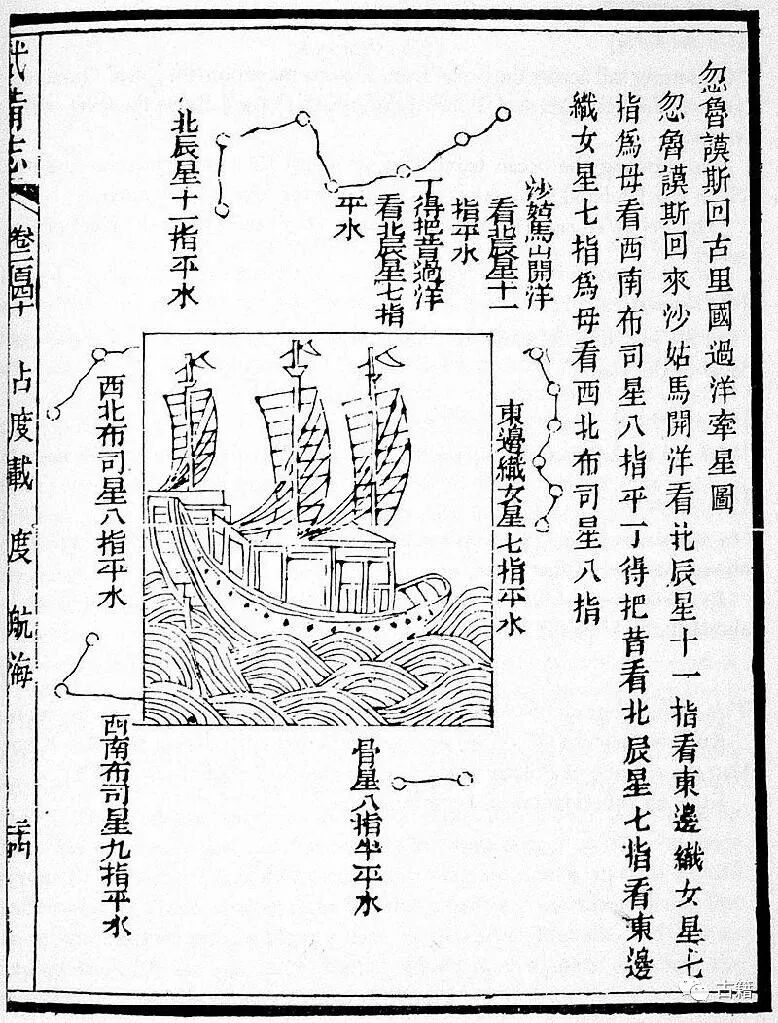 忽魯謨斯回古里國過洋牽星圖
忽魯謨斯回來沙姑馬開洋看北辰星十一指看東邊織女星七
指爲母看西南布司星八指平丁得把昔看北辰星七指看東邊
織女星七指爲母看西北布司星八指
沙姑馬山開洋
看北辰星十一
指平水
丁得把昔過洋
看北辰星七指
平水
北辰星十一指平水
東邊織女星七指平水
西北布司星八指平水
骨星八指半平水
西南布司星九指平水
武備志
卷二百四十
占度載
度
航海
古籍